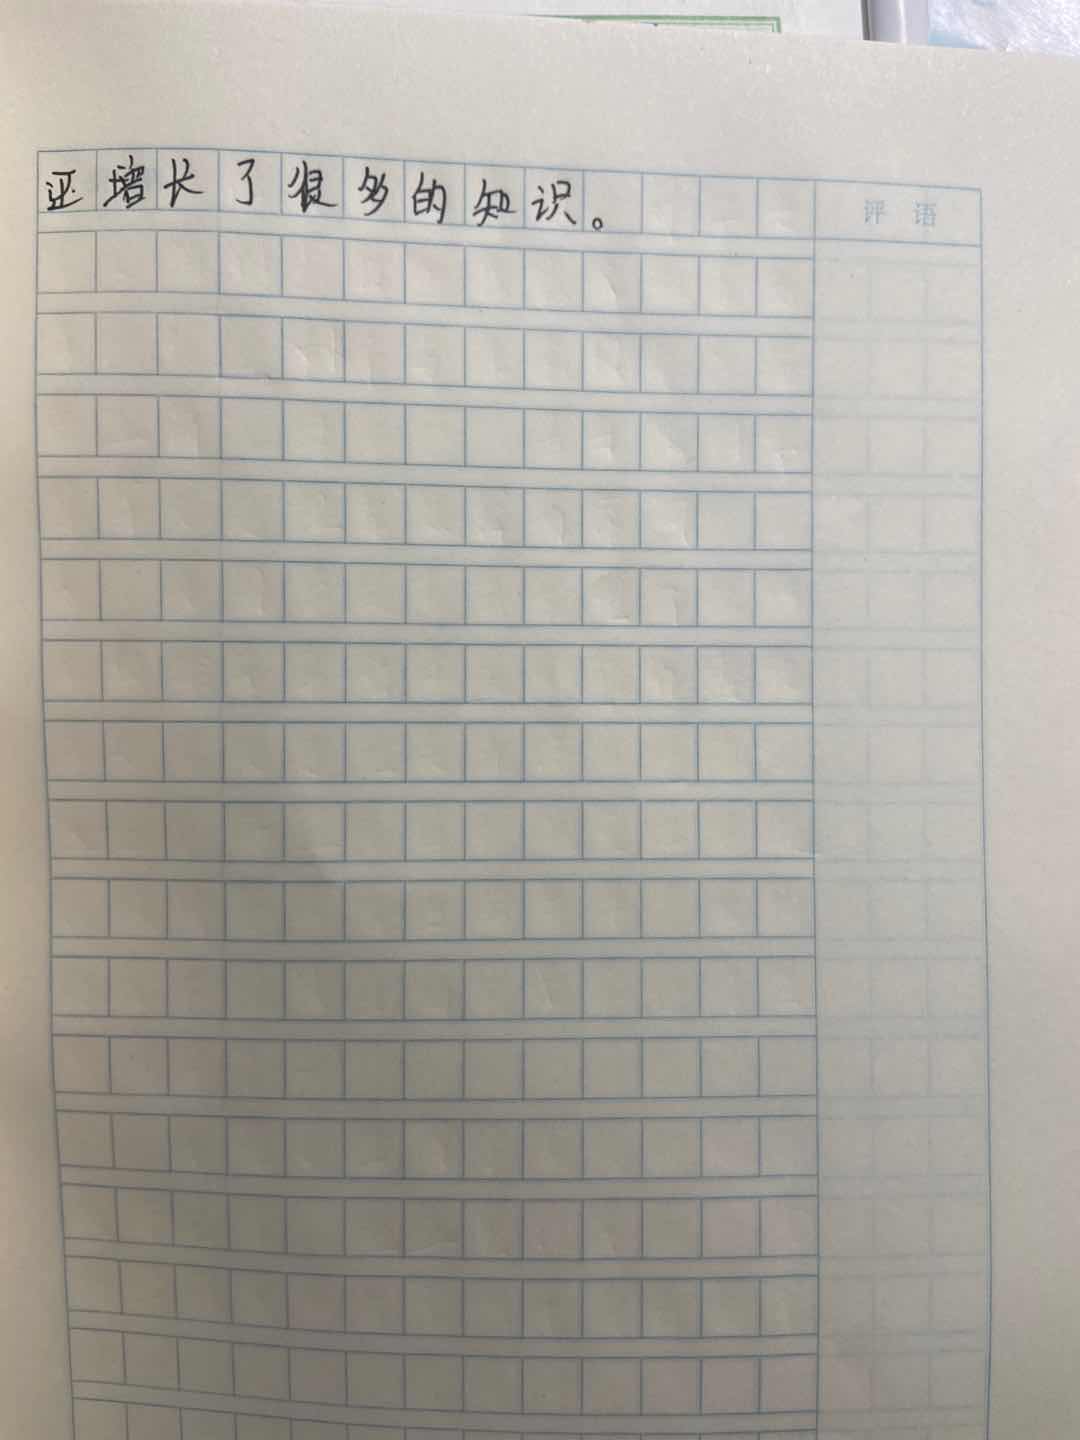 还增长了很多的知识。
评语